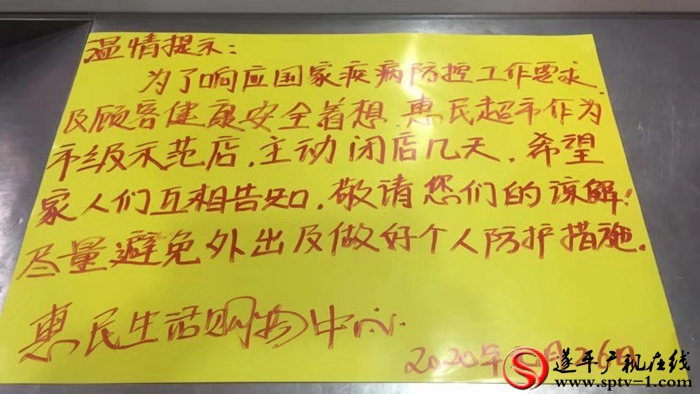 温情提示:
为了响应国家疾病防控工作要求,
及顾客健康安全着想,惠民超市作为
市级示范店,主动闭店几天,希望
家人们互相告知,敬请您们的谅解!
尽量避免外出及做好个人防护措施。
惠民生活购物中心
2020年 月26日
遂平广视在线
www.sptv-1.com